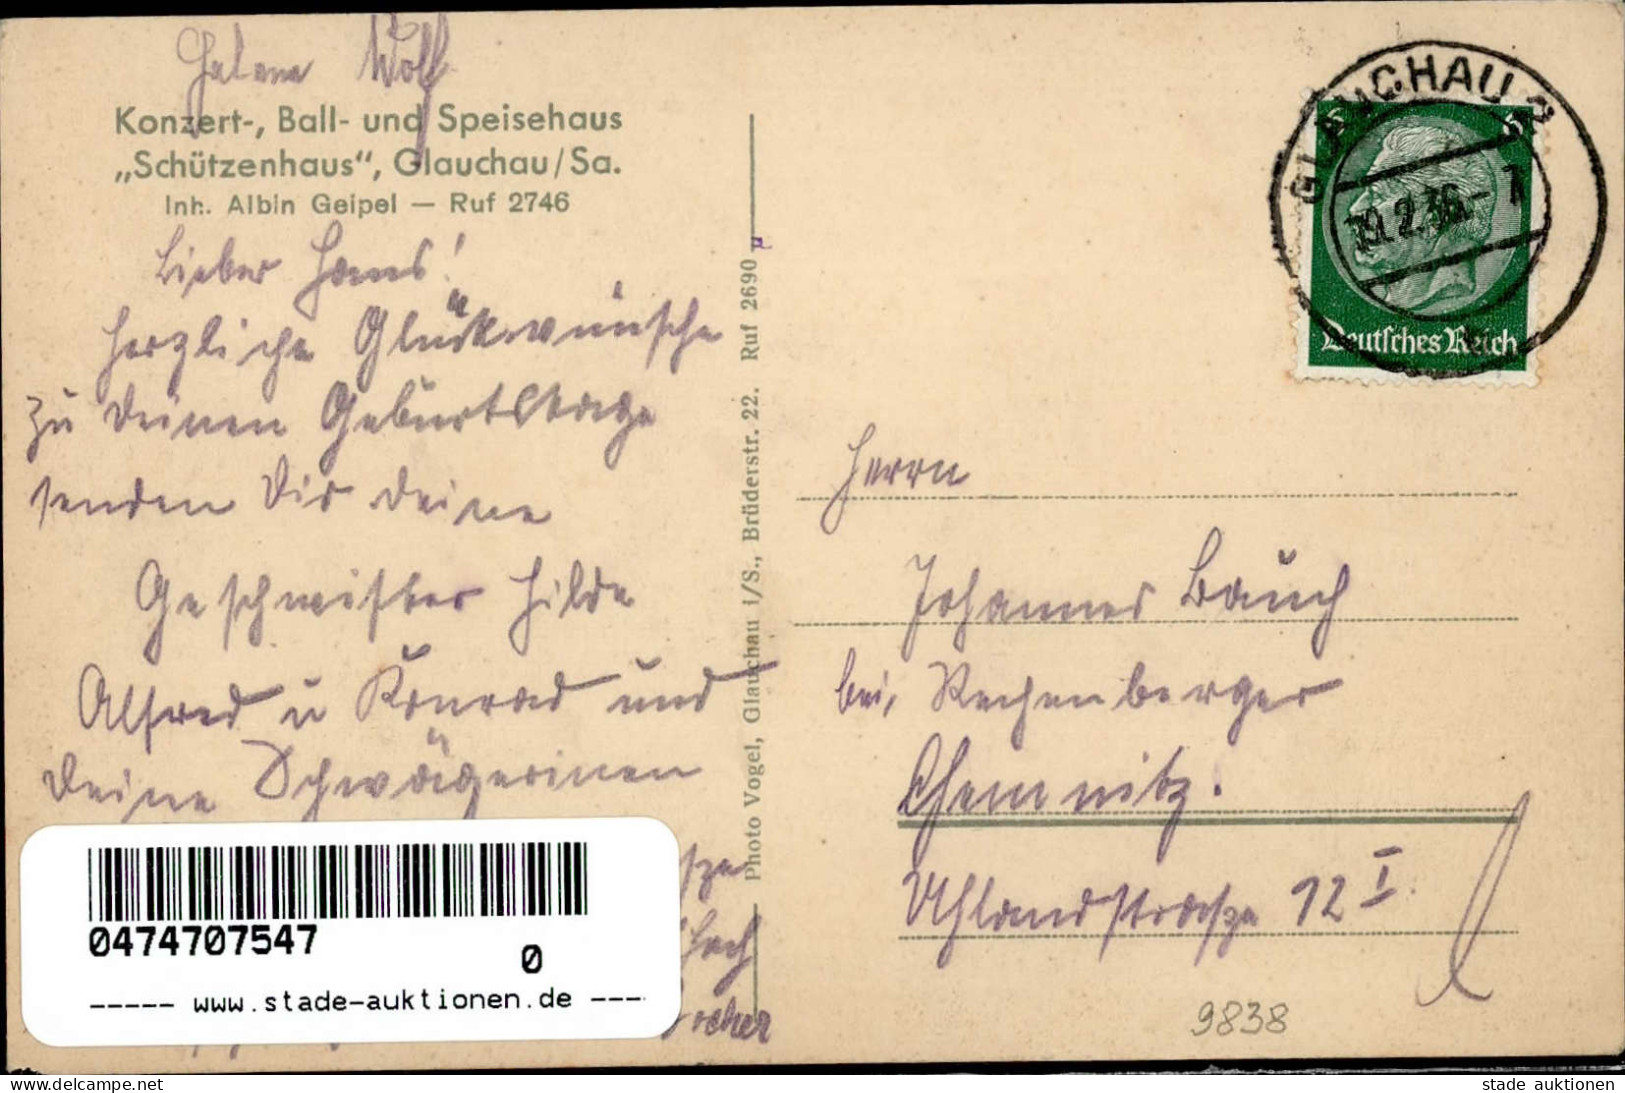 Helene Wolf
Konzert-, Ball- und Speisehaus
„Schützenhaus“, Glauchau/Sa.
Inh. Albin Geipel — Ruf 2746
Lieber Hans!
Herzliche Glückwünsche
zu deinen Geburtstage
senden Dir deine
Geschwister Hilde
Alfred u Konrad und
deine Schwägerinen
Photo Vogel, Glauchau i/S., Brüderstr. 22. Ruf 2690
GLAUCHAU 2
19.2.36.-7
6 6
Deutsches Reich
Herrn
Johannes Bauch
bei, Rechenberger
Chemnitz.
Uhlandstrasze 12 I.
9838
0474707547
0
----- www.stade-auktionen.de ----
delcampe.net
stade auktionen